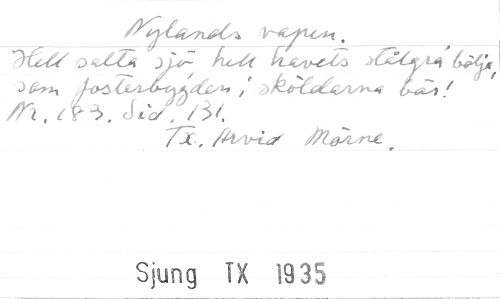 Nylands vapen.
Hell salta sjö hell havets stålgrå bölja,
som fosterbygden i sköldarna bär!
Nr. 183. Sid. 131.
Tx. Arvid Mörne.
Sjung TX 1935